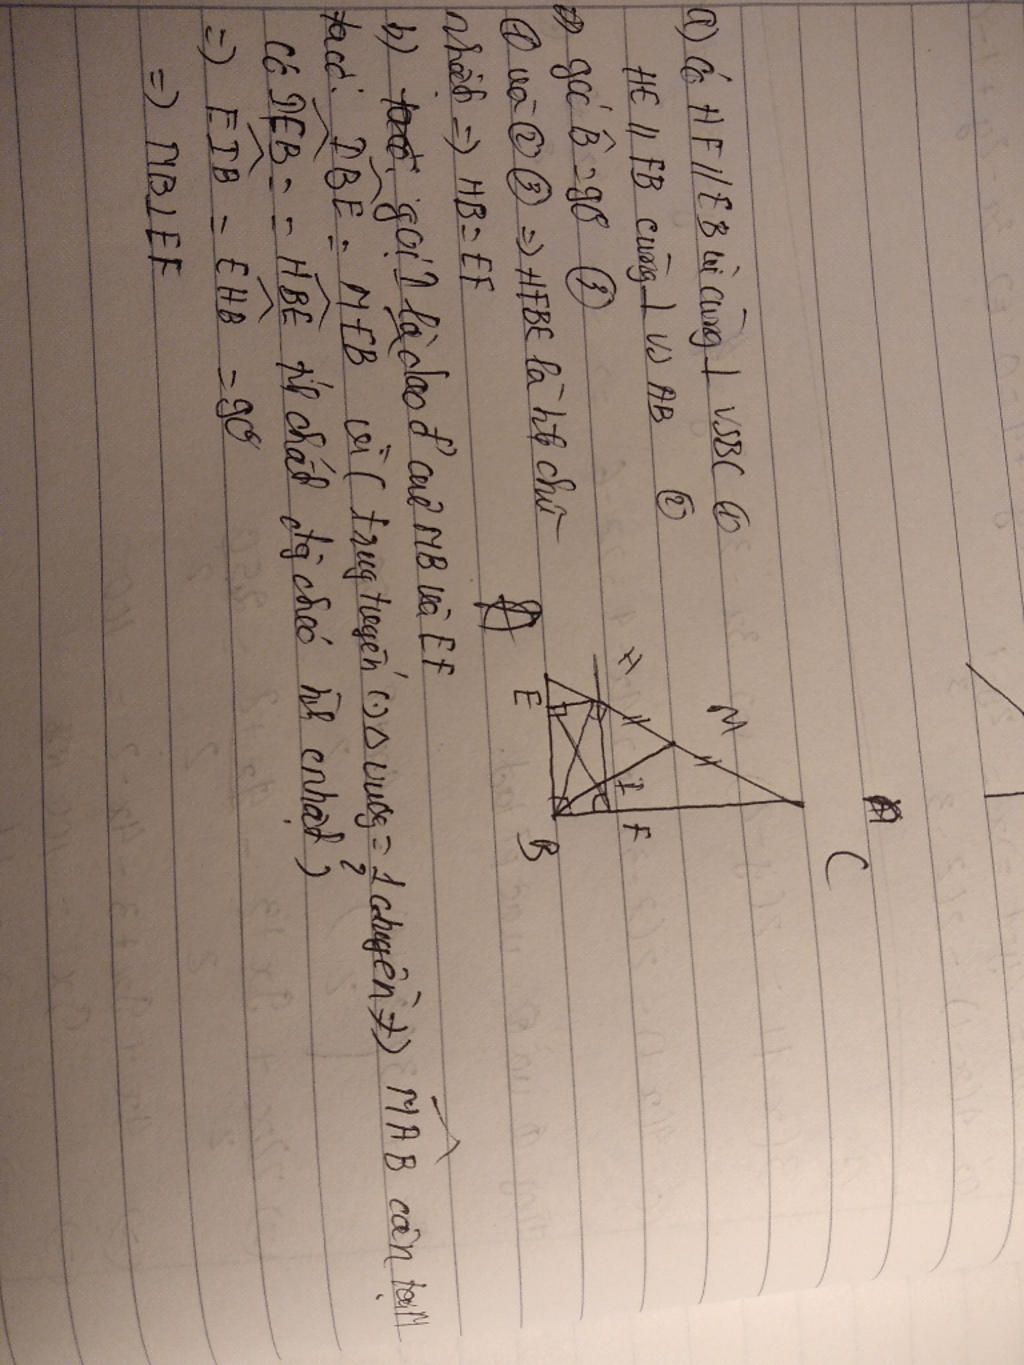 a) Có HF // EB vì cùng ⊥ vs BC ①
HE // FB cùng ⊥ vs AB ②
góc B̂ = 90 ③
① và ② ③ => HFBE là hb chữ
nhật => HB = EF
b) gọi I là giao đ' của MB và EF
ta có: IBE = MEB vì ( trug tuyến (.) Δ vuôg = 1/2 chuyền ≠) MAB cân tại M
có IEB = = HBE tíh chất đg chéo hìh cnhật )
=> EIB = EHB = 90
=> MB ⊥ EF
A
E
H
M
I
F
B
C